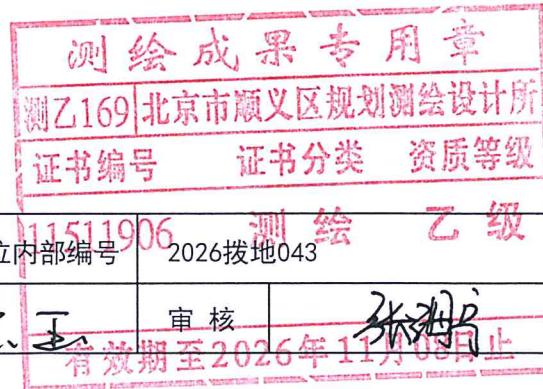 测绘成果专用章
测乙169 北京市顺义区规划测绘设计所
证书编号 证书分类 资质等级
11511906 测绘 乙级
位内部编号 2026拨地043
审核
有效期至2026年11月08日止